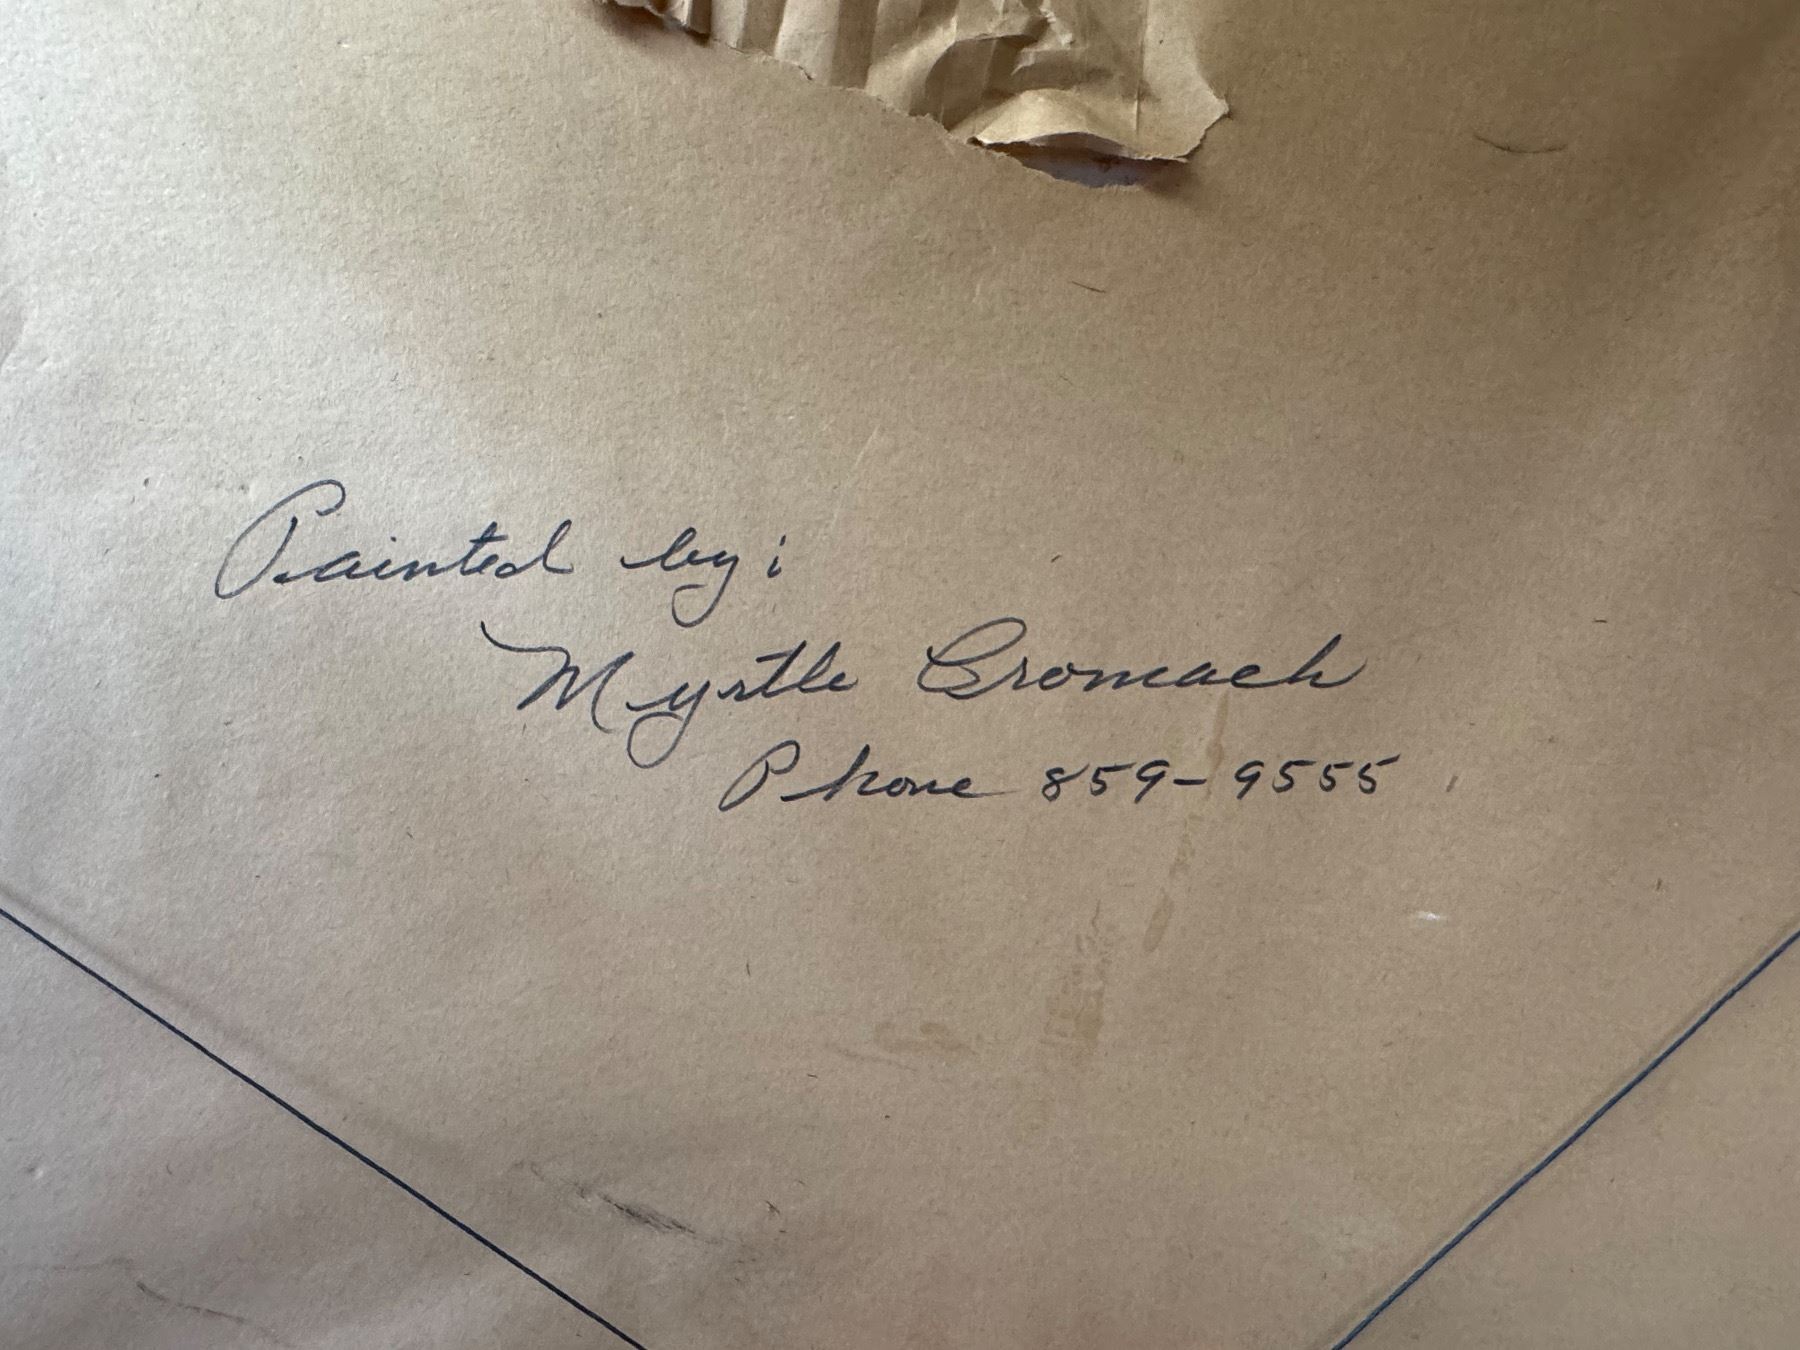 Painted by:
Myrtle Cromach
Phone 859-9555